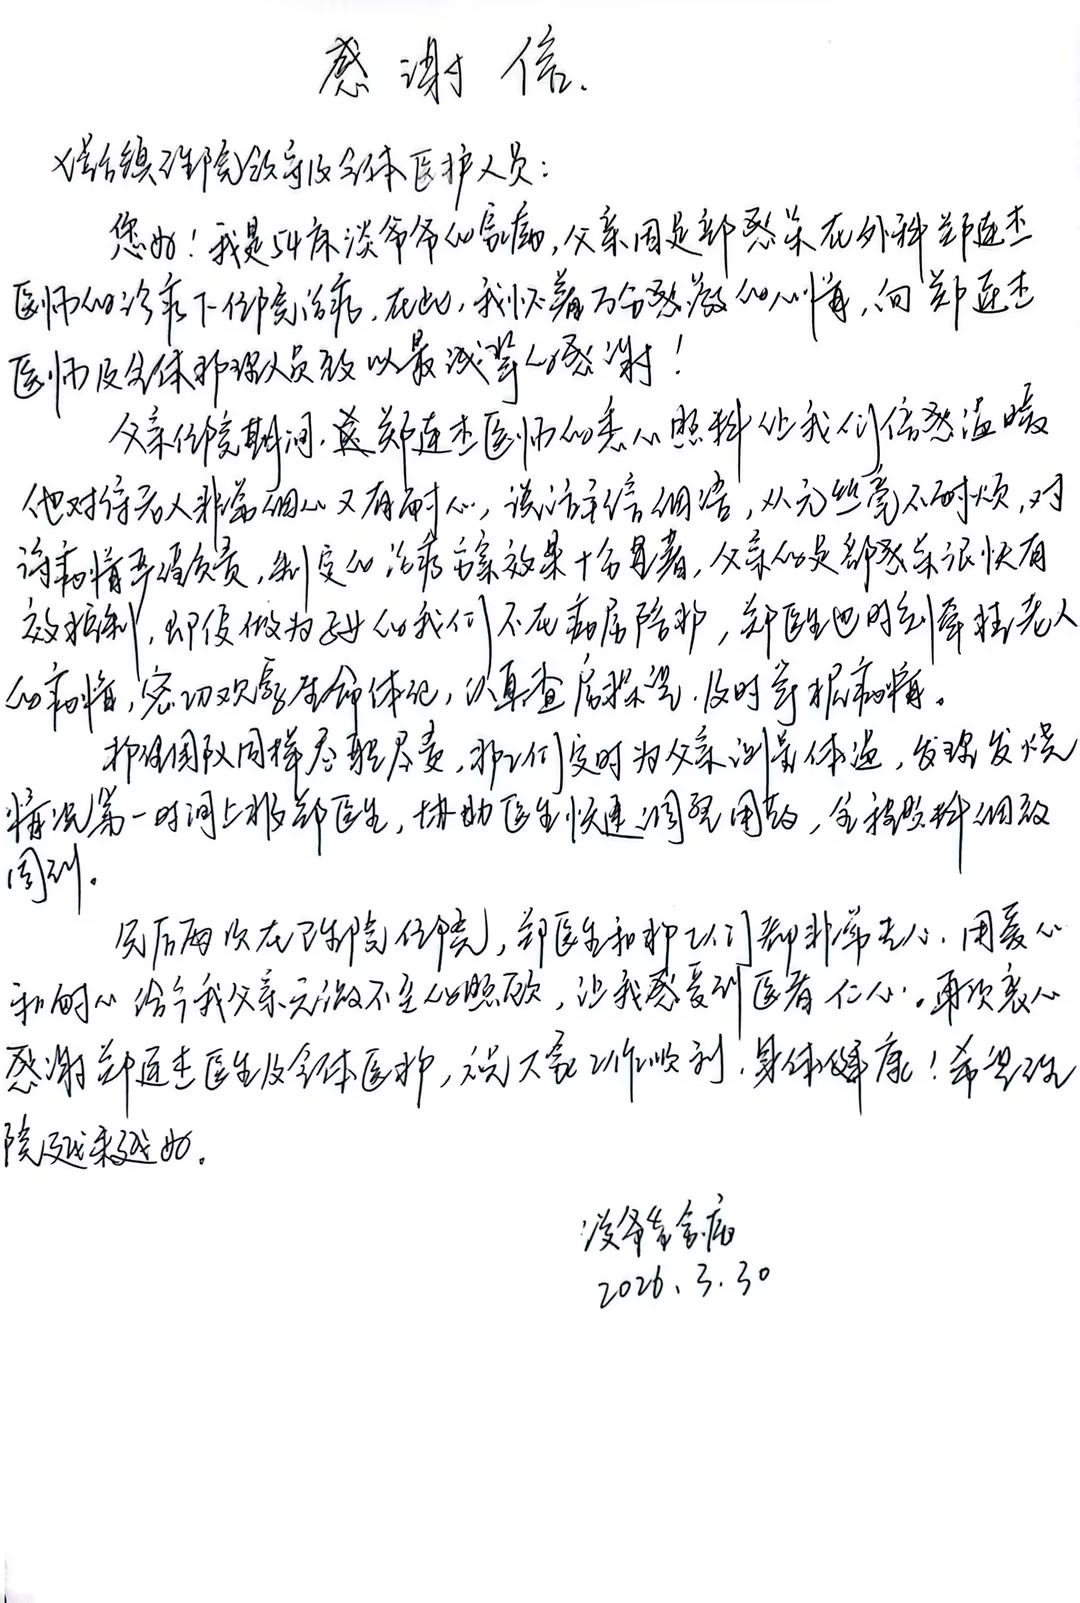 感谢信.
镇卫生院领导及全体医护人员：
您好！我是54床淡爷爷的家属，父亲因足部感染在外科郑连杰
医师的诊疗下住院治疗。在此，我怀着万分感激的心情，向郑连杰
医师及全体护理人员致以最诚挚的感谢！
父亲住院期间，郑连杰医师的悉心照料让我们倍感温暖
他对待老人非常细心又有耐心，说话轻信细语，从无丝毫不耐烦，对
待病情严谨负责，制定的治疗方案效果十分显著，父亲的足部感染很快有
效控制，即使做为子女的我们不在病房陪护，郑医生也时刻牵挂老人
的病情，密切观察生命体征，认真查房探望，及时掌握病情。
护理团队同样尽职尽责，护士们定时为父亲测量体温，发现发烧
情况第一时间上报郑医生，协助医生快速调整用药，全程照料细致
周到。
先后两次在卫生院住院，郑医生和护士们都非常尽心，用爱心
和耐心给予我父亲无微不至的照顾，让我感受到医者仁心。再次衷心
感谢郑连杰医生及全体医护，祝大家工作顺利，身体健康！希望卫生
院越来越好。
淡爷爷家属
2026.3.30